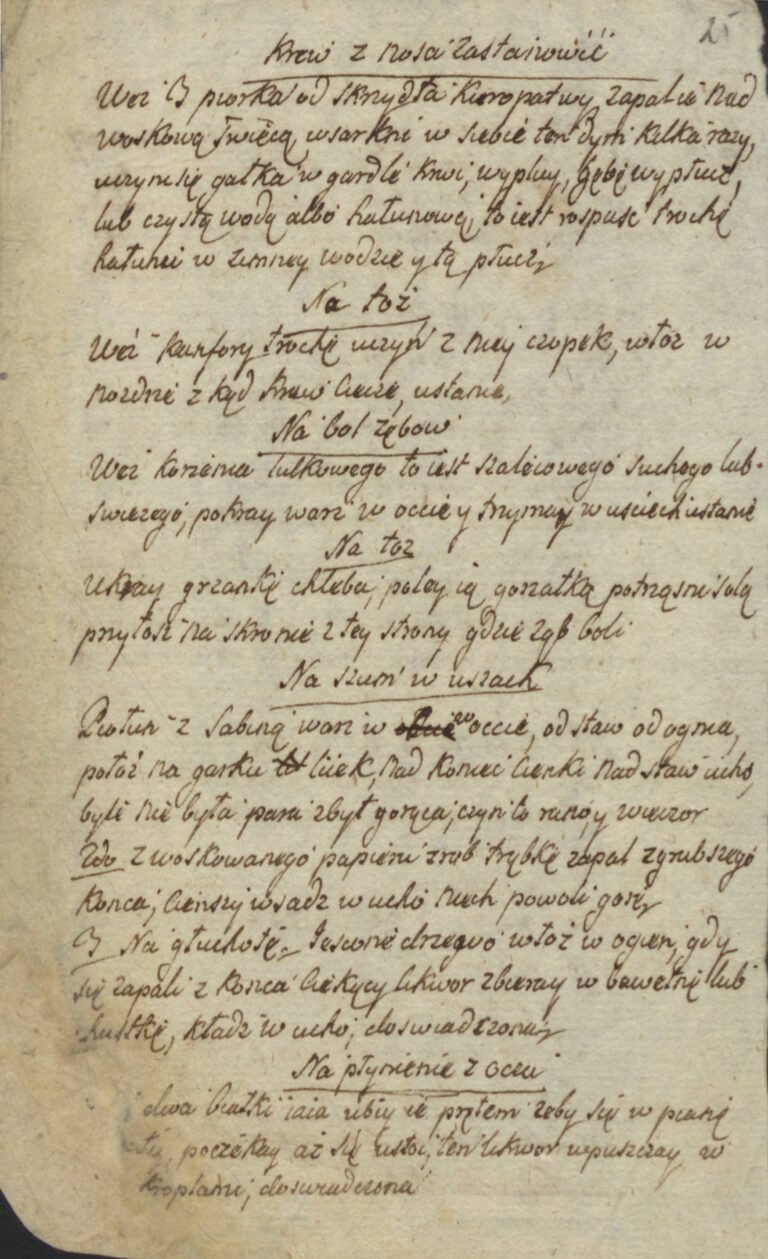 25
Krew z Nosa Zastanowić
Weź 3 piorka od skrzydła kuropatwy zapal ie nad
woskową Swiecą, wsarkni w siebie ten dym kilka razy,
uczyni się gałka w gardle krwi, wypluy, gębę wypłucz,
lub czystą wodą albo hałunową, to iest rospuść trochę
hałunu w zimney wodzie y tą płucz,
Na toż
Weź kamfory trochę uczyń z niej czopek, włoż w
nozdrze z kąd krew ciecze, ustanie,
Na bol zębow
Weź korzenia lulkowego to iest szaleiowego suchego lub
swieżego, pokray warz w occie y trzymay w uściech ustanie
Na toż
Ukray grzankę chleba, poley ią gorzałką potrząśni solą
przyłoż na skronie z tey strony gdzie ząb boli
Na szum w uszach
Piołun z Sabiną warz w occie, odstaw od ognia,
połoź na garku liiek, nad koniec cienki nadstaw ucho,
byle nie była para zbyt gorąca, czyń to rano, y wieczor
2do z woskowanego papieru zrob trąbkę zapal z grubszego
konca, cienszy wsadz w ucho niech powoli gore,
3 Na głuchotę, Jesione drzewo włoż w ogien, gdy
się zapali z konca ciekący likwor zbieray w bawełnę lub
chustkę, kładz w ucho, doswiadczona,
Na płynienie z oczu
dwa białki iaia ubiy ie prętem żeby się w pianę
poczekay aż się ustoi, ten likwor wpuszczay w
kroplami, doswiadczona